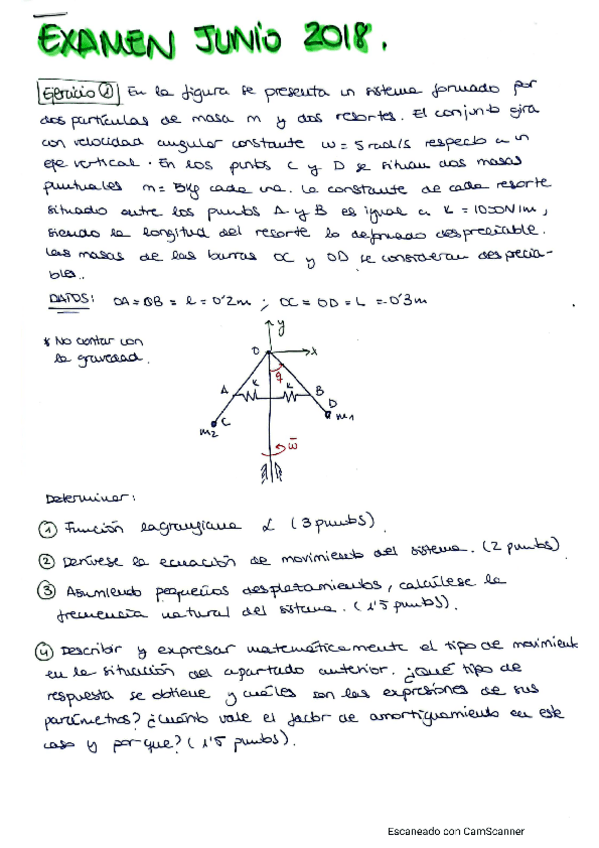 EXAMEN JUNIO 2018.
Ejercicio ① En la figura se presenta un sistema formado por
dos partículas de masa m y dos resortes. El conjunto gira
con velocidad angular constante w = 5 rad/s respecto a un
eje vertical. En los puntos C y D se situan dos masas
puntuales m = 3kg cada una. La constante de cada resorte
situado entre los puntos A y B es igual a K = 1000N/m,
siendo la longitud del resorte lo deformado despreciable.
Las masas de las barras OC y OD se consideran desprecia-
bles.
DATOS: OA = OB = l = 0'2m ; OC = OD = L = 0'3m
* No contar con
la gravedad.
y
O
x
q
A
K
K
B
D
m1
C
m2
w̄
Determinar:
① Función lagrangiana L (3 puntos)
② Derívese la ecuación de movimiento del sistema. (2 puntos)
③ Asumiendo pequeños desplazamientos, calcúlese la
frecuencia natural del sistema. (1'5 puntos).
④ Describir y expresar matemáticamente el tipo de movimient
en la situación del apartado anterior. ¿Qué tipo de
respuesta se obtiene y cuáles son las expresiones de sus
parámetros? ¿Cuánto vale el factor de amortiguamiento en este
caso y por que? (1'5 puntos).
Escaneado con CamScanner